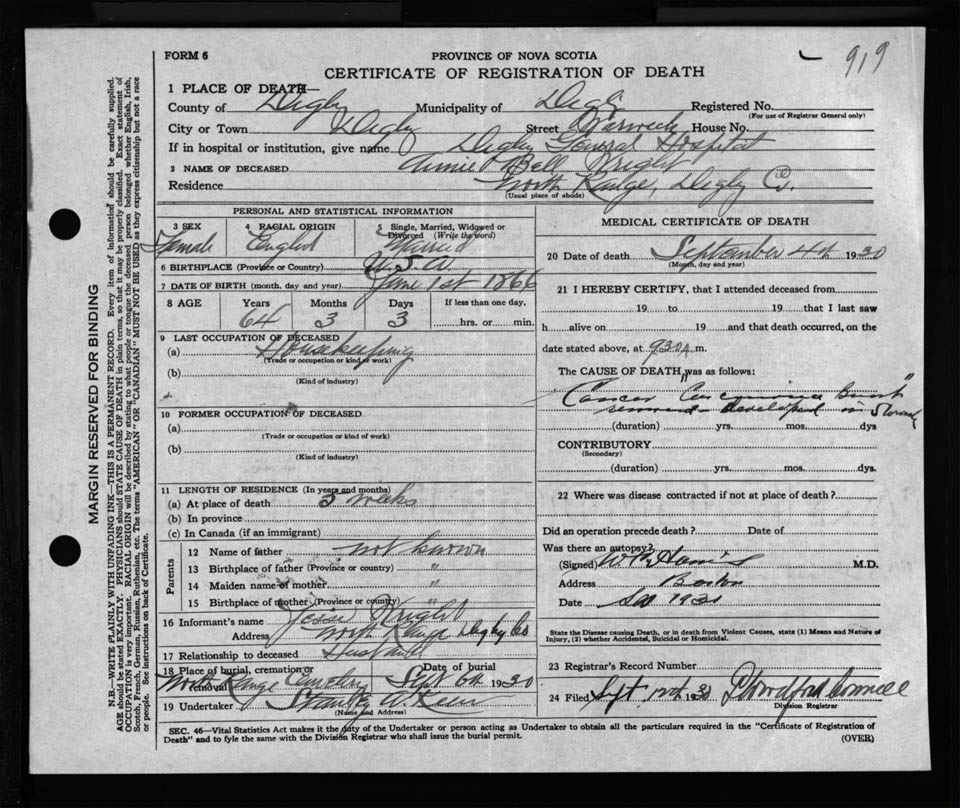 919
FORM 6
PROVINCE OF NOVA SCOTIA
CERTIFICATE OF REGISTRATION OF DEATH
1 PLACE OF DEATH—
County of Digby Municipality of Digby Registered No.
(For use of Registrar General only)
City or Town Digby Street Warwick House No.
If in hospital or institution, give name Digby General Hospital
2 NAME OF DECEASED Annie Bell Wright
Residence North Range, Digby Co.
(Usual place of abode)
PERSONAL AND STATISTICAL INFORMATION
3 SEX 4 RACIAL ORIGIN 5 Single, Married, Widowed or Divorced (Write the word)
Female English Married
6 BIRTHPLACE (Province or Country) U.S.A.
7 DATE OF BIRTH (month, day and year) June 1st 1866
8 AGE Years Months Days If less than one day,
64 3 3 hrs. or min.
9 LAST OCCUPATION OF DECEASED
(a) Housekeeping
(Trade or occupation or kind of work)
(b)
(Kind of industry)
10 FORMER OCCUPATION OF DECEASED
(a)
(Trade or occupation or kind of work)
(b)
(Kind of industry)
11 LENGTH OF RESIDENCE (In years and months)
(a) At place of death 3 weeks
(b) In province
(c) In Canada (if an immigrant)
Parents
12 Name of father not known
13 Birthplace of father (Province or country) "
14 Maiden name of mother "
15 Birthplace of mother (Province or country) "
16 Informant's name Wright
Address North Range Digby Co
17 Relationship to deceased Husband
18 Place of burial, cremation or removal North Range Cemetery Date of burial Sept 6th 1930
19 Undertaker Stanley A.
(Name and Address)
MEDICAL CERTIFICATE OF DEATH
20 Date of death September 4th 1930
(Month, day and year)
21 I HEREBY CERTIFY, that I attended deceased from
19 to 19 that I last saw
h alive on 19 and that death occurred, on the
date stated above, at 930 A m.
The CAUSE OF DEATH was as follows:
Cancer Carcinoma Breast
removed - developed in
(duration) yrs. mos. dys
CONTRIBUTORY
(Secondary)
(duration) yrs. mos. dys.
22 Where was disease contracted if not at place of death?
Did an operation precede death? Date of
Was there an autopsy?
(Signed) M.D.
Address
Date
State the Disease causing Death, or in death from Violent Causes, state (1) Means and Nature of
Injury, (2) whether Accidental, Suicidal or Homicidal.
23 Registrar's Record Number
24 Filed Sept 12th 1930
Division Registrar
SEC. 46—Vital Statistics Act makes it the duty of the Undertaker or person acting as Undertaker to obtain all the particulars required in the "Certificate of Registration of
Death" and to fyle the same with the Division Registrar who shall issue the burial permit.
(OVER)
MARGIN RESERVED FOR BINDING
N.B.—WRITE PLAINLY WITH UNFADING INK—THIS IS A PERMANENT RECORD. Every item of information should be carefully supplied.
AGE should be stated EXACTLY. PHYSICIANS should STATE CAUSE OF DEATH in plain terms, so that it may be properly classified. Exact statement of
OCCUPATION is very important. RACIAL ORIGIN will be described by stating to what people or tongue the deceased person belonged whether English, Irish,
Scotch, French, German, Russian, Ruthenian, etc. The terms "AMERICAN" OR "CANADIAN" MUST NOT BE USED as they express citizenship but not a race
or people. See instructions on back of Certificate.